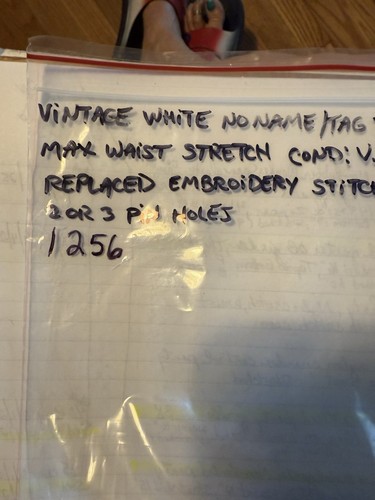 VINTAGE WHITE NO NAME/TAG
MAX WAIST STRETCH COND: V.
REPLACED EMBROIDERY STITC
2 OR 3 PIN HOLES
1256